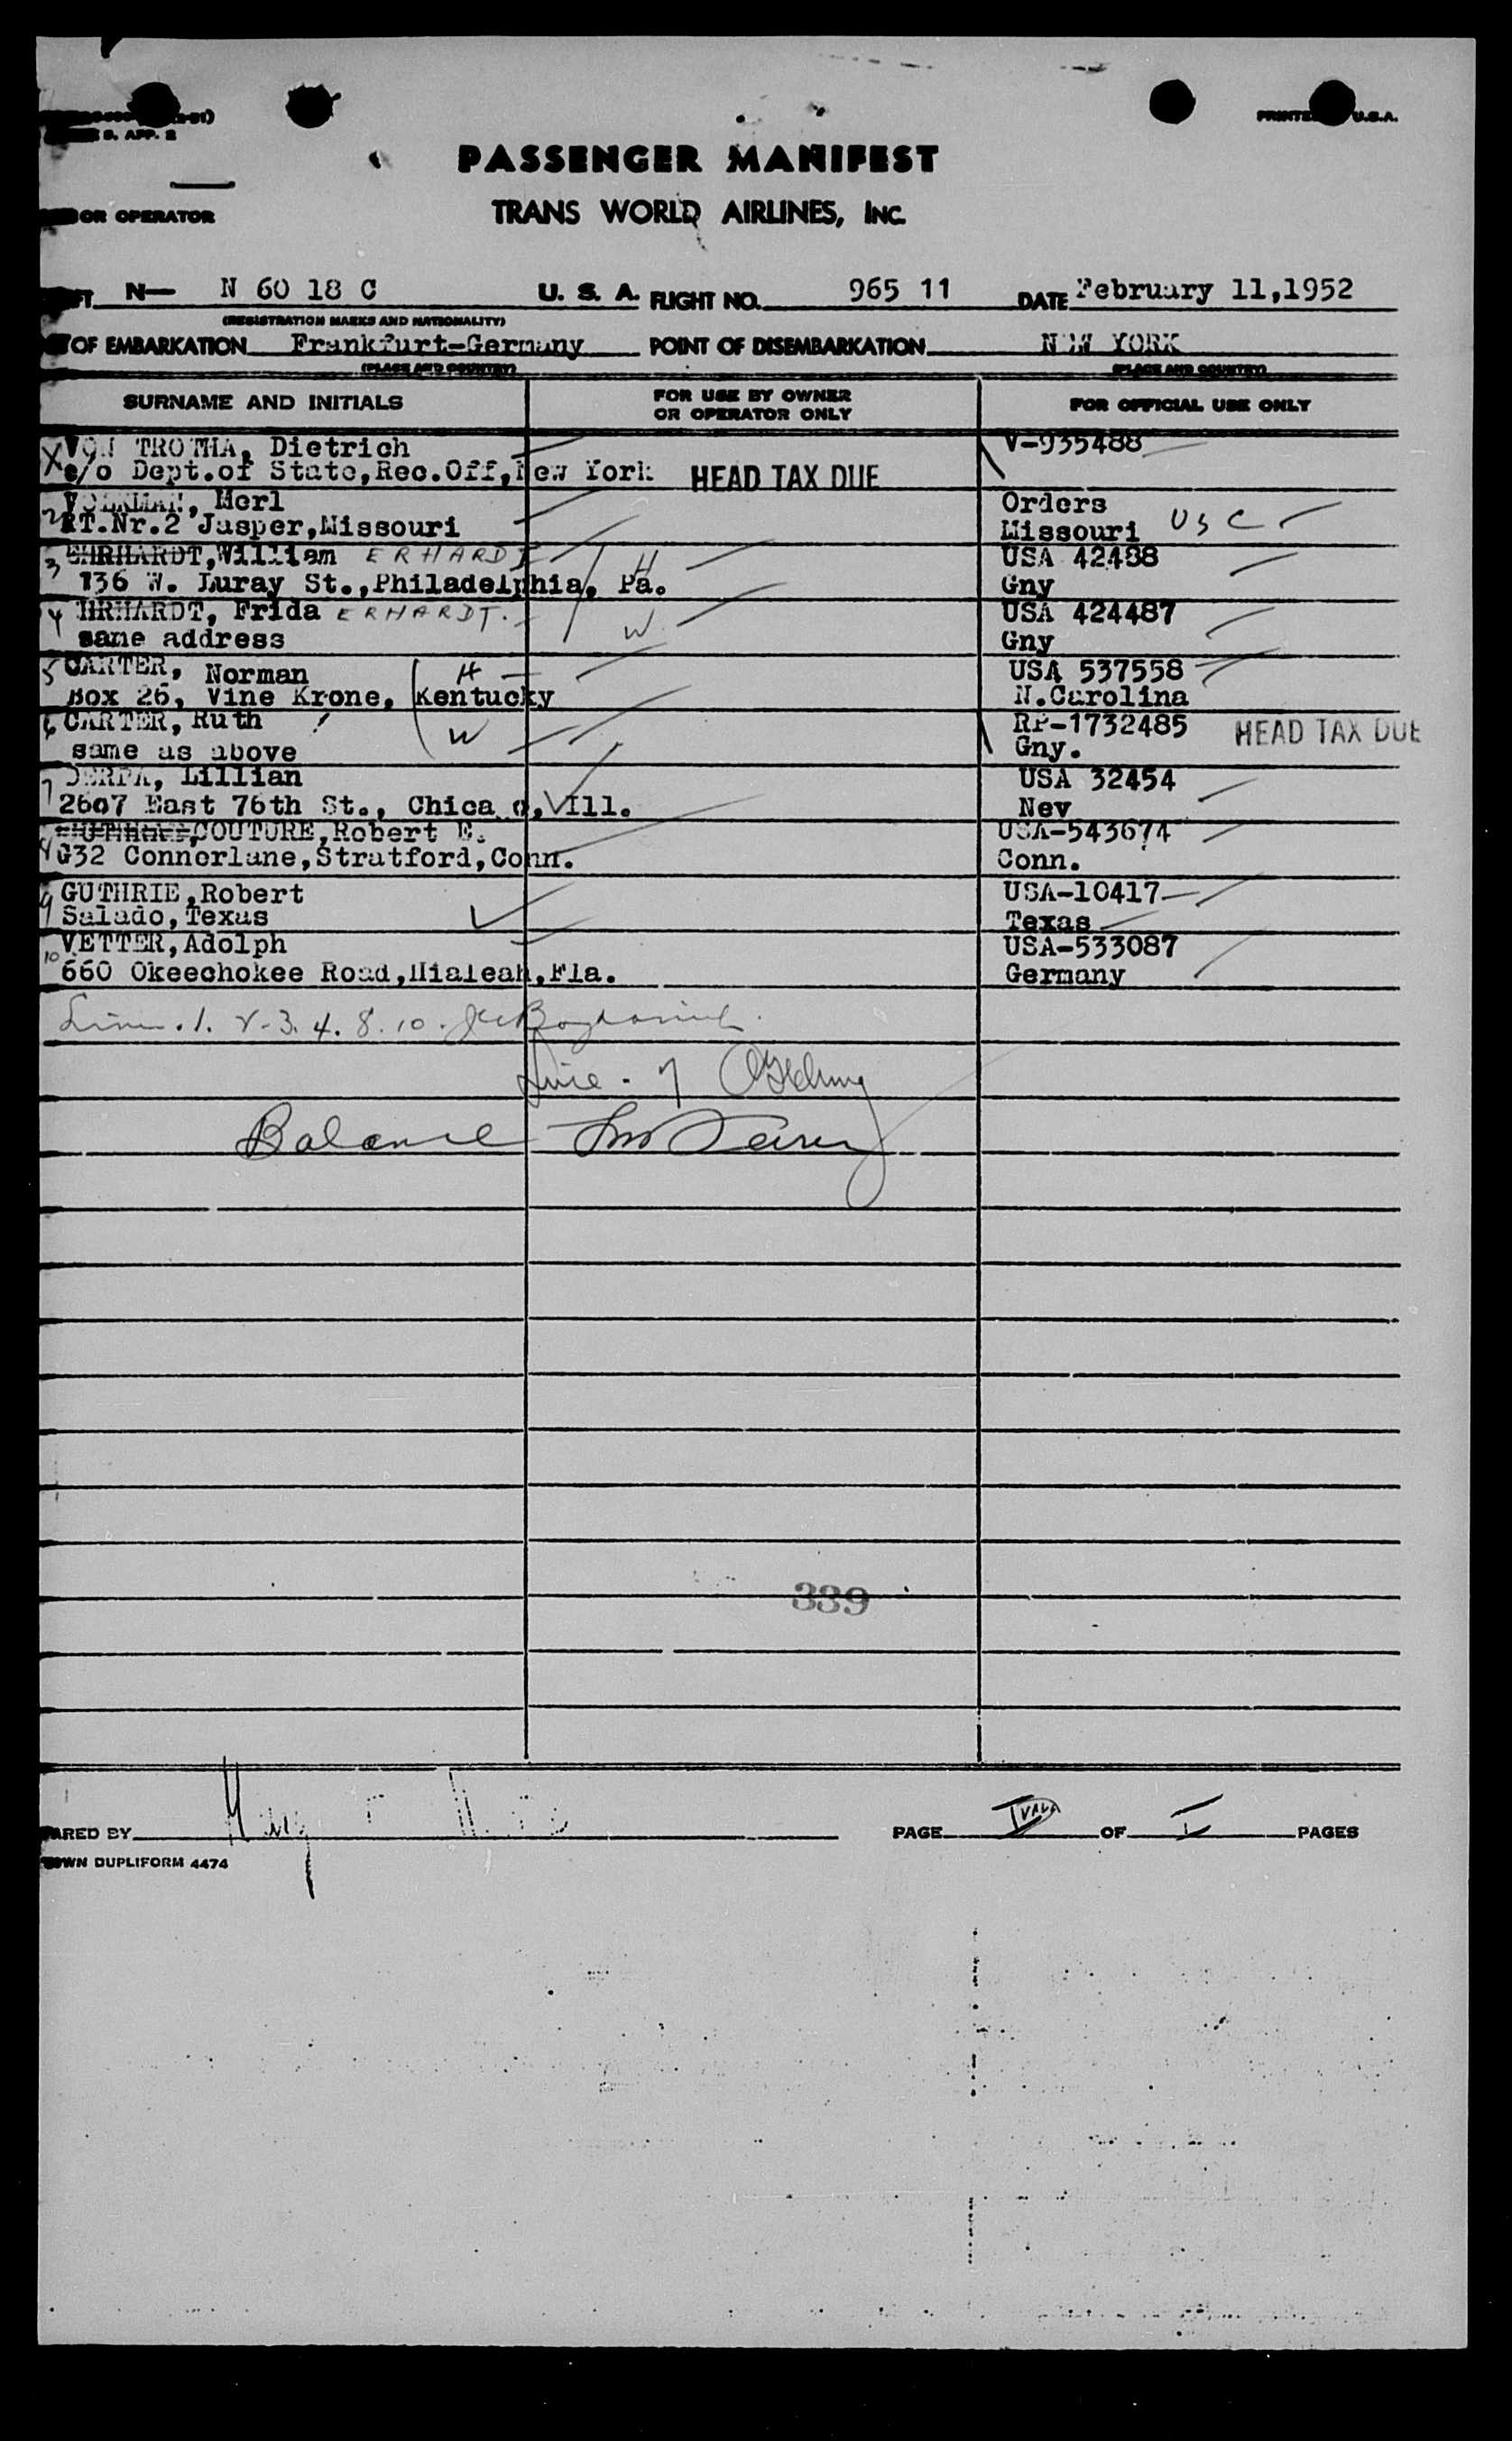 PRINTED U.S.A.
S. APP. 2
PASSENGER MANIFEST
OR OPERATOR
TRANS WORLD AIRLINES, INC.
N— N 60 18 C U. S. A. FLIGHT NO. 965 11 DATE February 11,1952
(REGISTRATION MARKS AND NATIONALITY)
OF EMBARKATION Frankfurt-Germany POINT OF DISEMBARKATION NEW YORK
(PLACE AND COUNTRY) (PLACE AND COUNTRY)
SURNAME AND INITIALS FOR USE BY OWNER OR OPERATOR ONLY FOR OFFICIAL USE ONLY
X VON TROTHA, Dietrich V-935488
c/o Dept.of State,Rec.Off,New York HEAD TAX DUE
2 Merl Orders
RT.Nr.2 Jasper,Missouri Missouri USC
3 EHRHARDT,William ERHARDT H USA 42488
136 W. Luray St.,Philadelphia, Pa. Gny
4 EHRHARDT, Frida ERHARDT. W USA 424487
same address Gny
5 CARTER, Norman H USA 537558
Box 26, Vine Krone, Kentucky N.Carolina
6 CARTER, Ruth W RP-1732485 HEAD TAX DUE
same as above Gny.
7 DERPA, Lillian USA 32454
2607 East 76th St., Chica o, Ill. Nev
8 COUTURE,Robert E. USA-543674
G32 Connorlane,Stratford,Conn. Conn.
9 GUTHRIE,Robert USA-10417
Salado,Texas Texas
10 VETTER,Adolph USA-533087
660 Okeechokee Road,Hialeah,Fla. Germany
1. 2. 3. 4. 8. 10.
Line - 7
Balance
339
ARED BY Mary PAGE OF I PAGES
OWN DUPLIFORM 4474